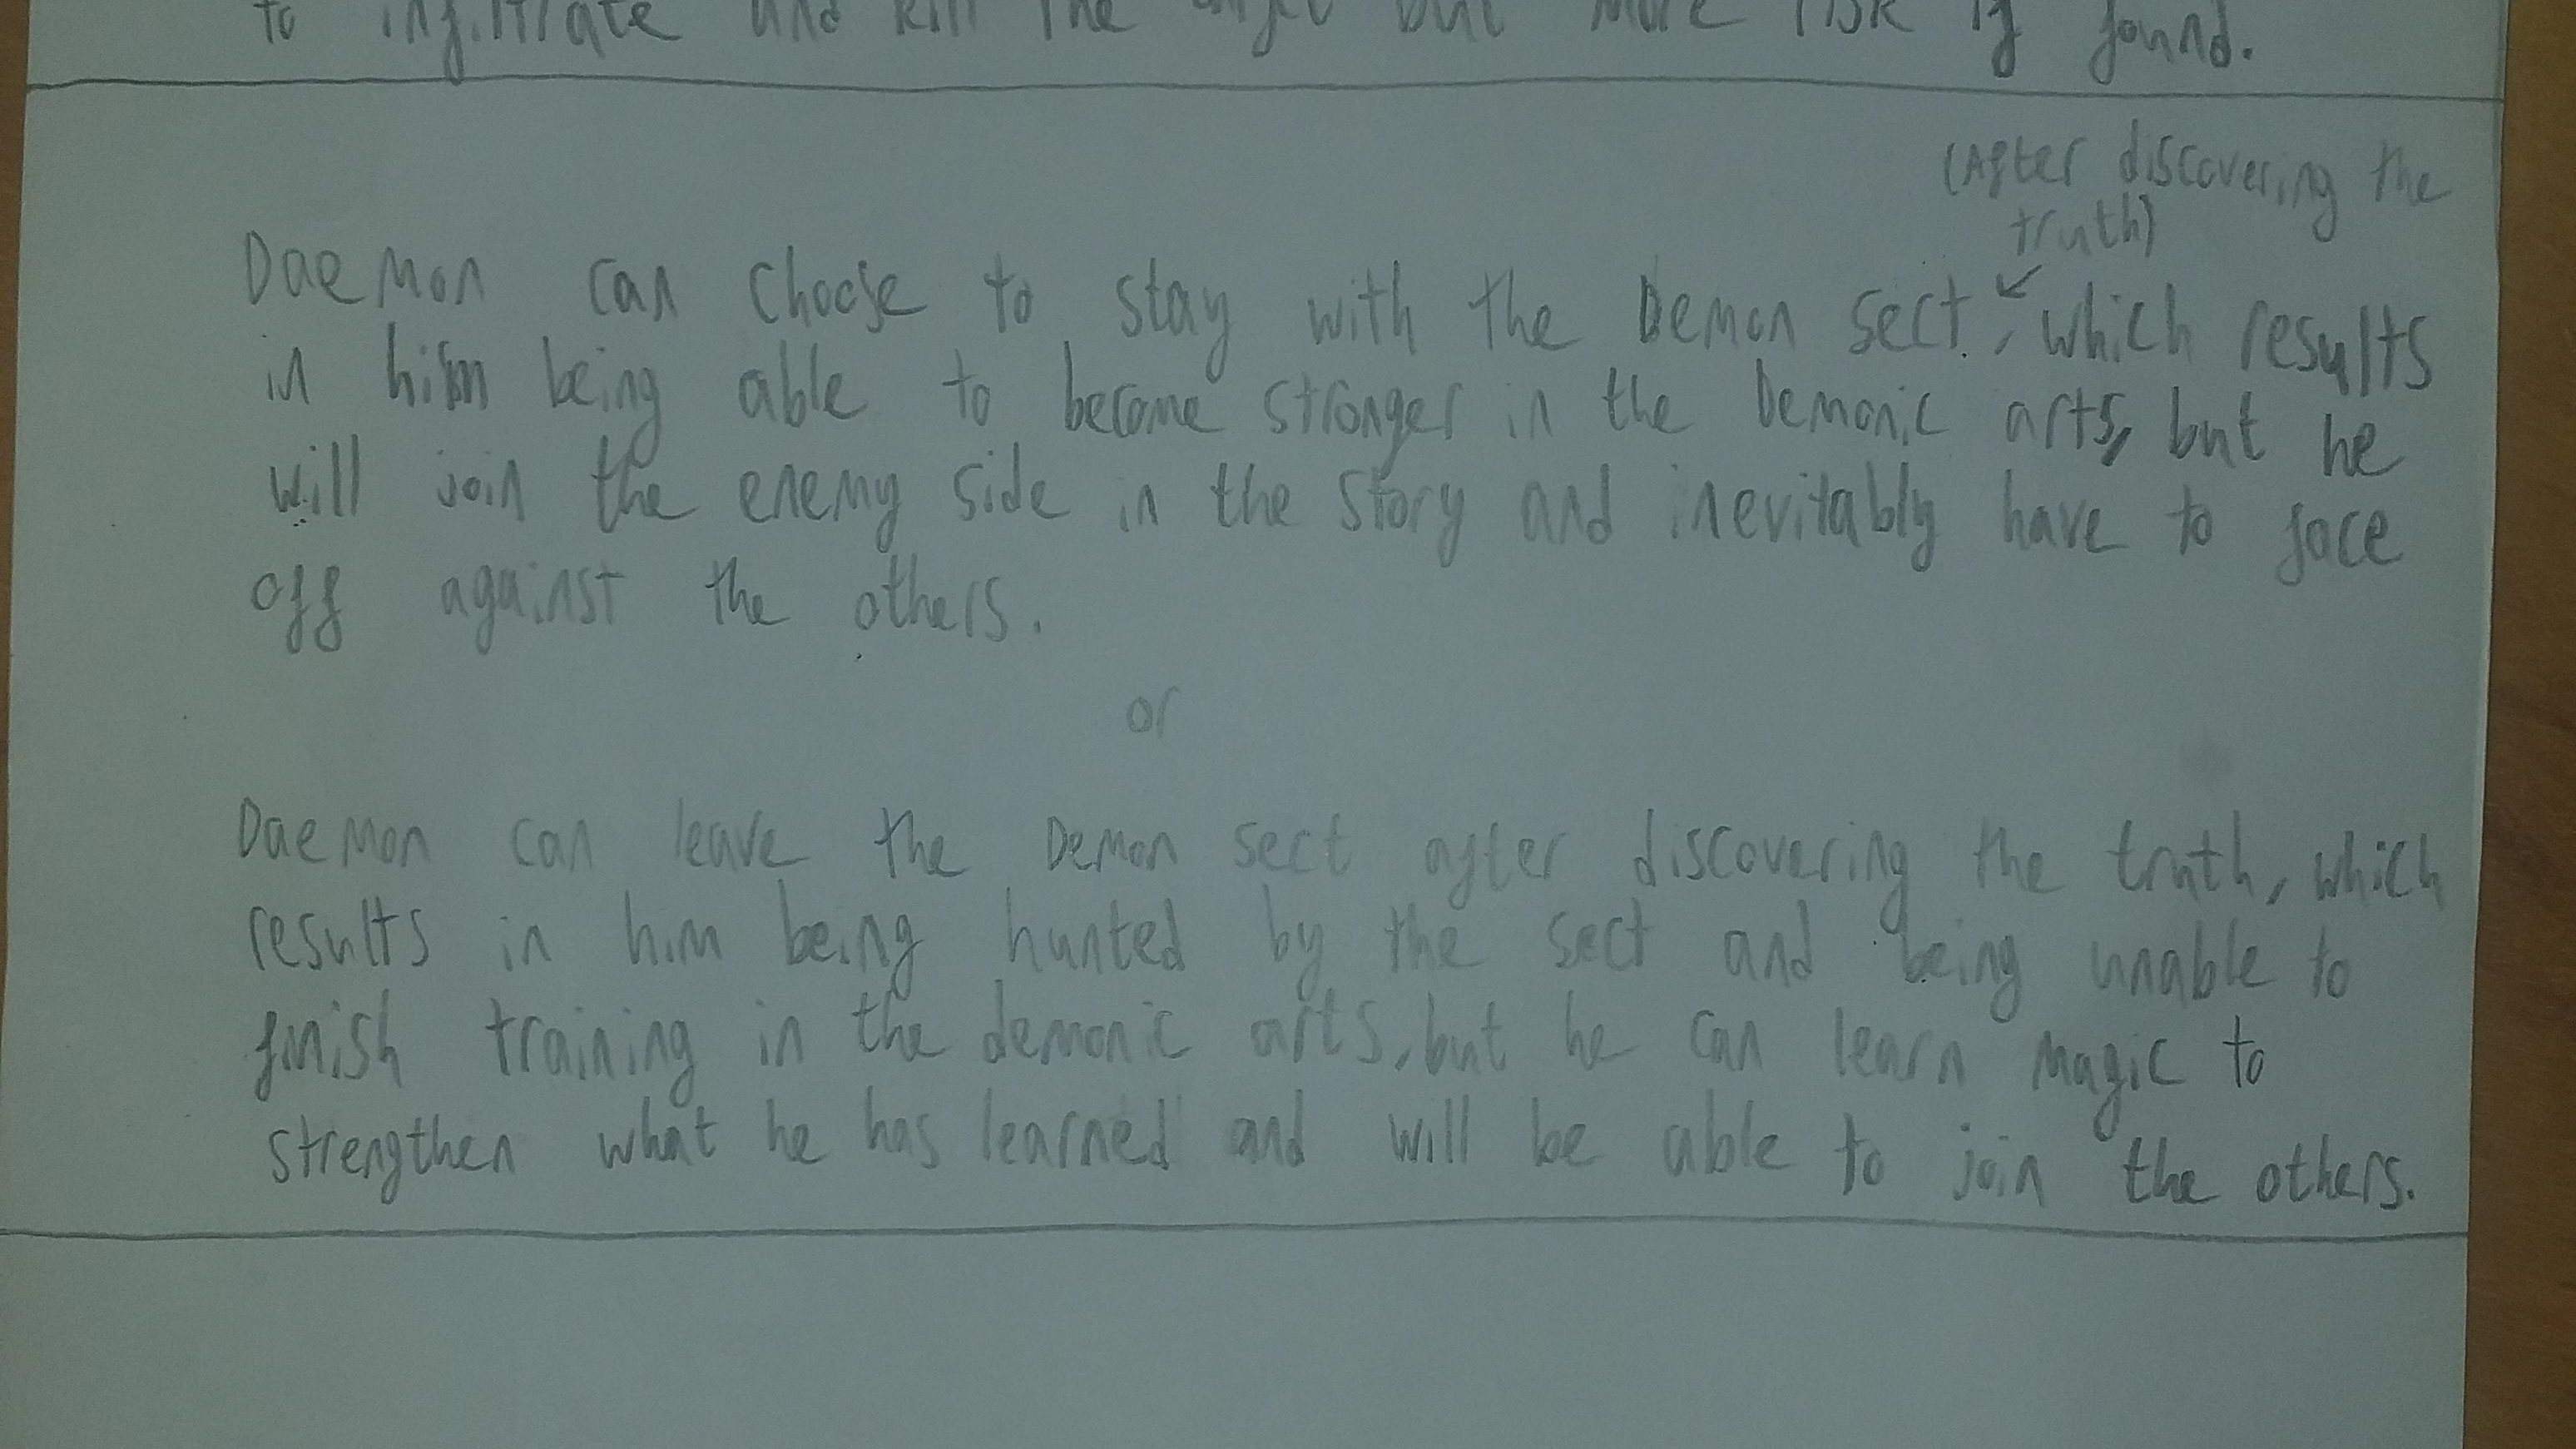 to infiltrate and kill the target but more risk if found.
(After discovering the
truth)
Daemon can choose to stay with the Demon sect, which results
in him being able to become stronger in the Demonic arts, but he
will join the enemy side in the story and inevitably have to face
off against the others.
or
Daemon can leave the Demon sect after discovering the truth, which
results in him being hunted by the sect and being unable to
finish training in the demonic arts, but he can learn magic to
strengthen what he has learned and will be able to join the others.